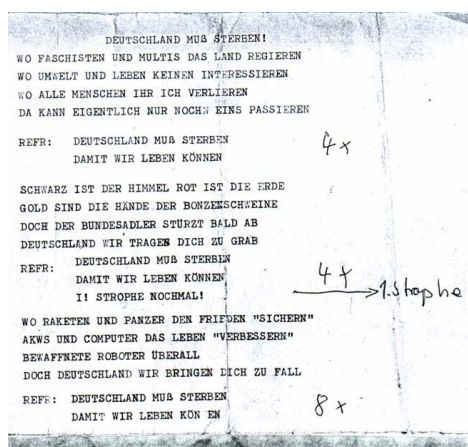 DEUTSCHLAND MUß STERBEN!
WO FASCHISTEN UND MULTIS DAS LAND REGIEREN
WO UMWELT UND LEBEN KEINEN INTERESSIEREN
WO ALLE MENSCHEN IHR ICH VERLIEREN
DA KANN EIGENTLICH NUR NOCHN EINS PASSIEREN
REFR: DEUTSCHLAND MUß STERBEN
DAMIT WIR LEBEN KÖNNEN 4x
SCHWARZ IST DER HIMMEL ROT IST DIE ERDE
GOLD SIND DIE HÄNDE DER BONZENSCHWEINE
DOCH DER BUNDESADLER STÜRZT BALD AB
DEUTSCHLAND WIR TRAGEN DICH ZU GRAB
REFR: DEUTSCHLAND MUß STERBEN
DAMIT WIR LEBEN KÖNNEN 4x
I! STROPHE NOCHMAL! 1.Strophe
WO RAKETEN UND PANZER DEN FRIEDEN "SICHERN"
AKWS UND COMPUTER DAS LEBEN "VERBESSERN"
BEWAFFNETE ROBOTER ÜBERALL
DOCH DEUTSCHLAND WIR BRINGEN DICH ZU FALL
REFR: DEUTSCHLAND MUß STERBEN
DAMIT WIR LEBEN KÖN EN 8x